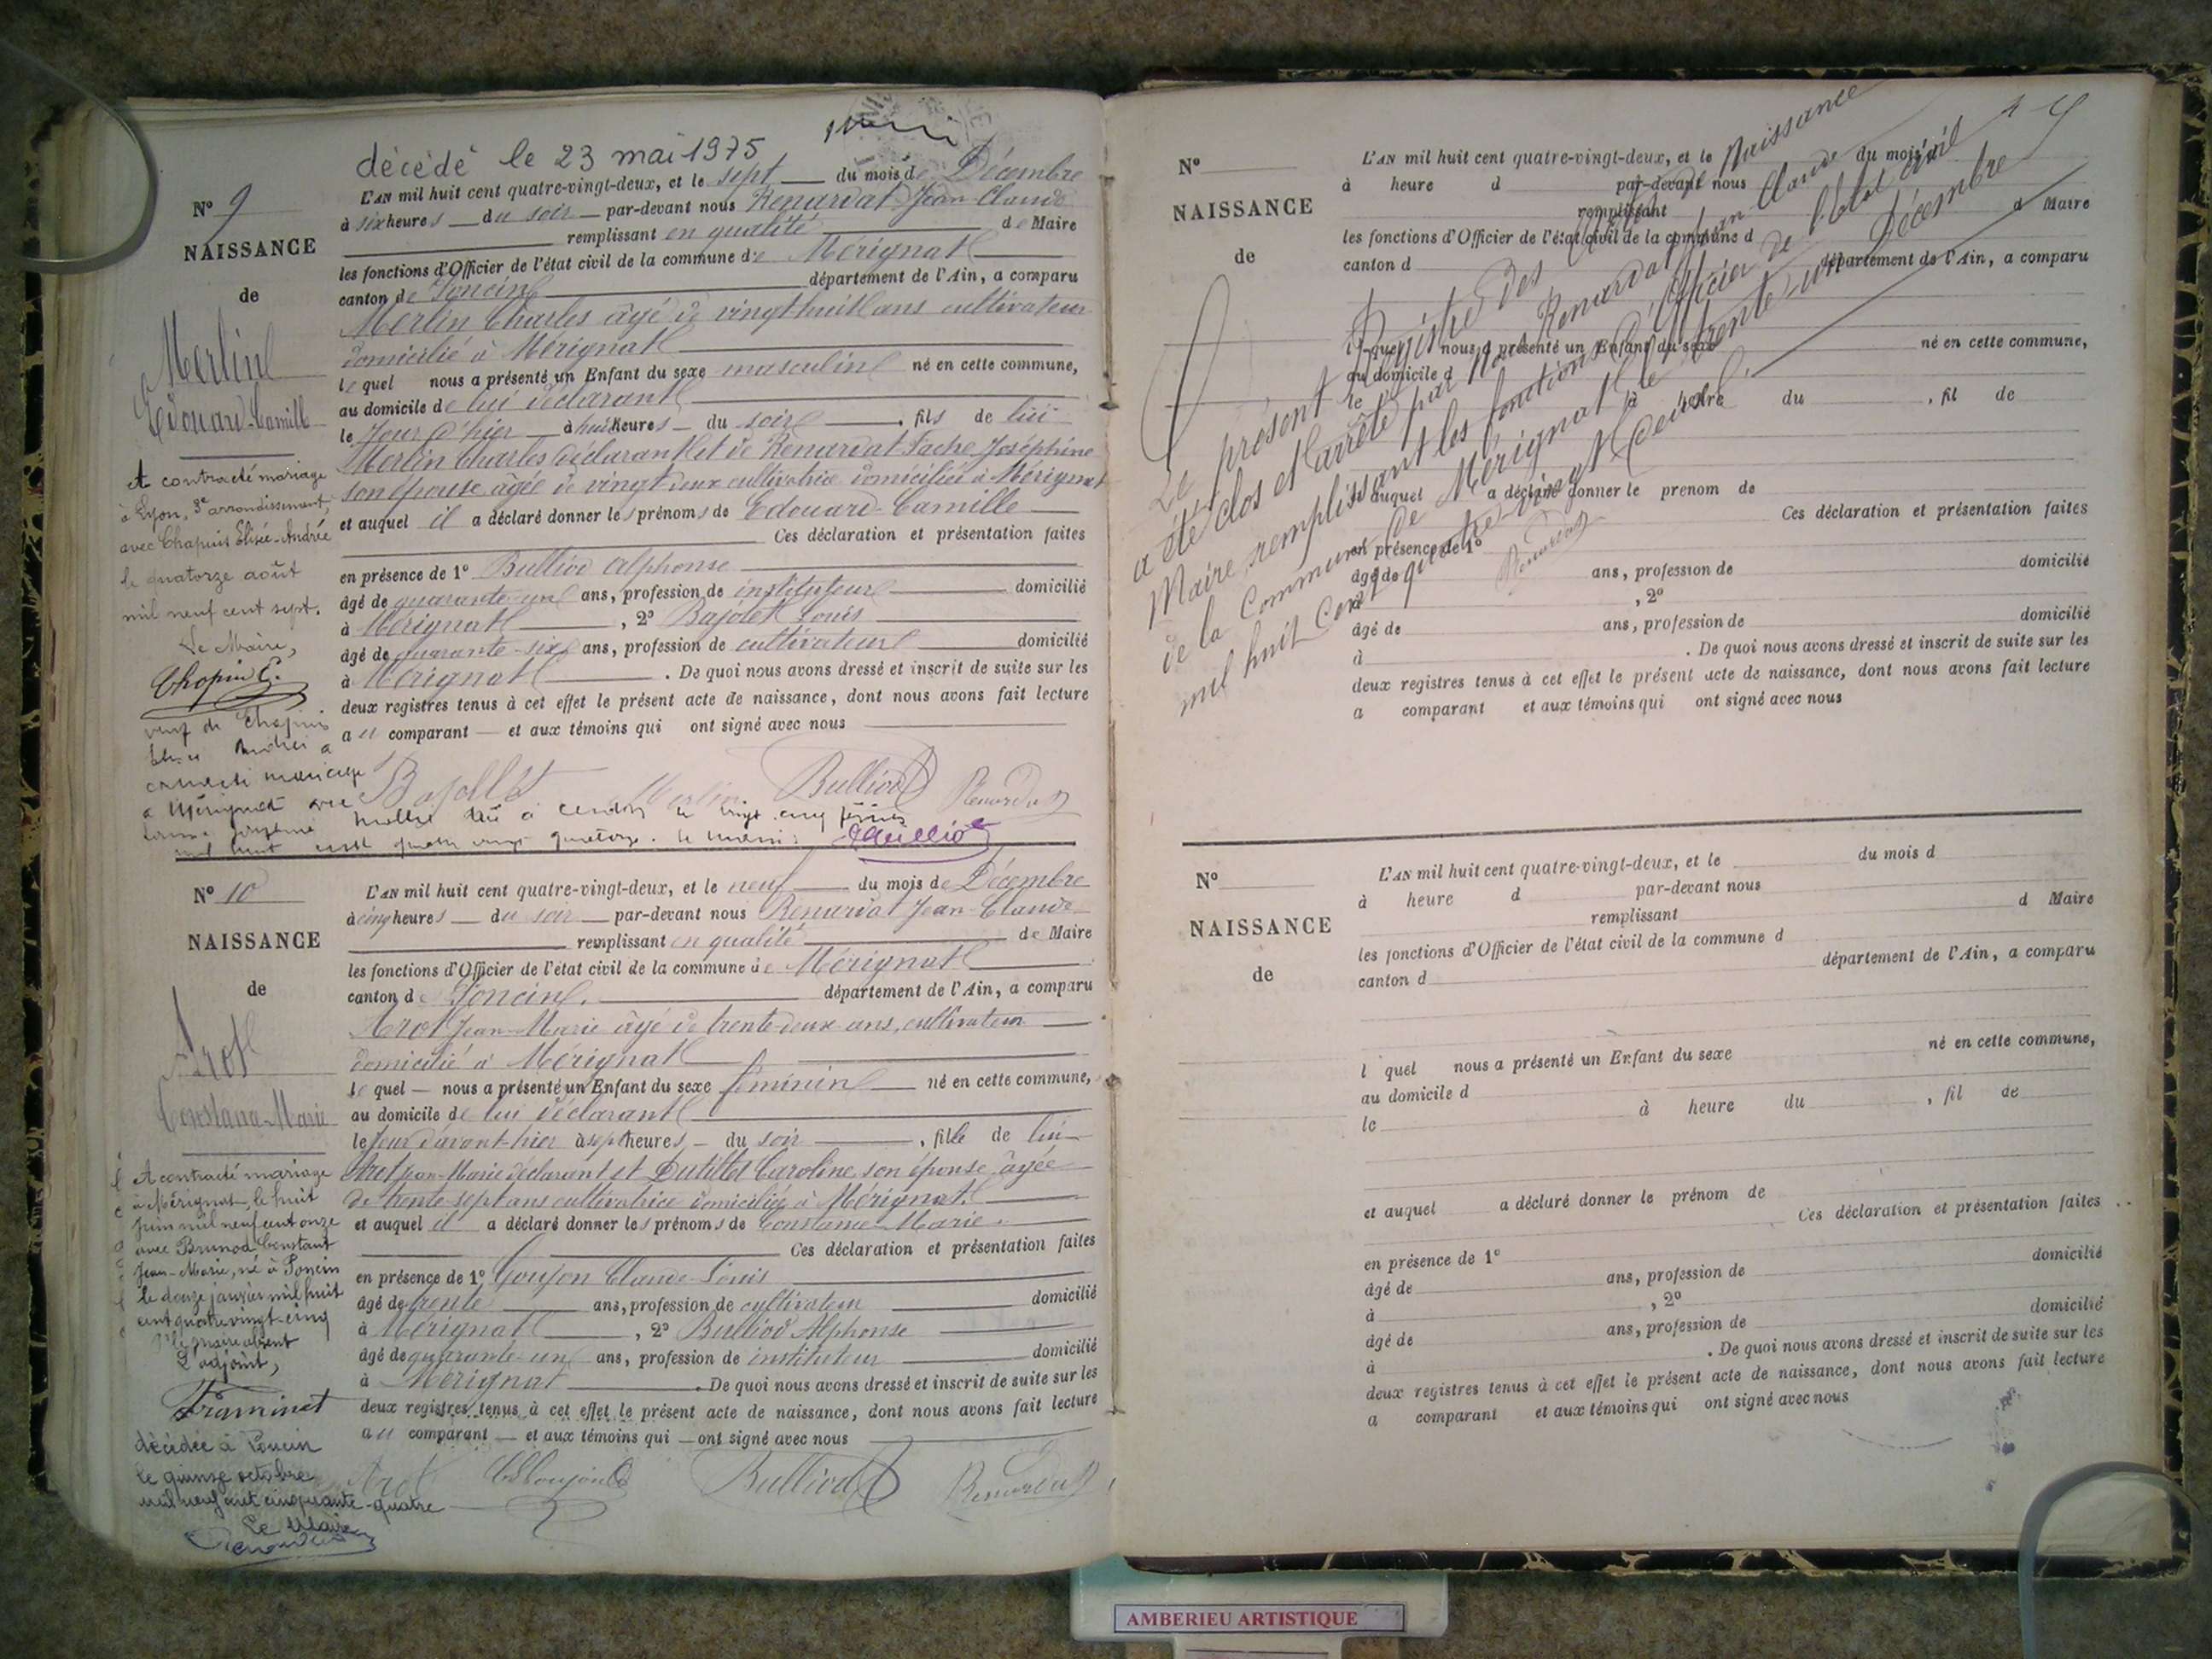 décédé le 23 mai 1975
N° 9
NAISSANCE
de
Merlin
Edouard-Camille
L'AN mil huit cent quatre-vingt-deux, et le sept du mois de Décembre
à six heures du soir par-devant nous Renardat Jean-Claude
remplissant en qualité de Maire
les fonctions d'Officier de l'état civil de la commune de Mérignat
canton de Poncin département de l'Ain, a comparu
Merlin Charles âgé de vingt huit ans cultivateur
domicilié à Mérignat
lequel nous a présenté un Enfant du sexe masculin né en cette commune,
au domicile de lui déclarant
le Jour d'hier à huit heures du soir, fils de lui
Merlin Charles déclarant et de Renardat-Fache Joséphine
son épouse âgée de vingt deux cultivatrice domiciliée à Mérignat
et auquel il a déclaré donner les prénoms de Edouard-Camille
Ces déclaration et présentation faites
en présence de 1° Bulliod Alphonse
âgé de quarante-un ans, profession de instituteur domicilié
à Mérignat, 2° Bajolet Louis
âgé de quarante-six ans, profession de cultivateur domicilié
à Mérignat. De quoi nous avons dressé et inscrit de suite sur les
deux registres tenus à cet effet le présent acte de naissance, dont nous avons fait lecture
au comparant et aux témoins qui ont signé avec nous
Bajollet Merlin Bulliod Renardat
A contracté mariage
à Lyon, 3e arrondissement,
avec Chapuis Elisée-Andrée
le quatorze août
mil neuf cent sept.
Le Maire,
Chopin E.
veuf de Chapuis
a
contracté mariage
à Mérignat avec
née à Cerdon le vingt-cinq février
mil huit cent quatre vingt quatorze. le maire:
N° 10
NAISSANCE
de
Arot
Constance-Marie
L'AN mil huit cent quatre-vingt-deux, et le neuf du mois de Décembre
à cinq heures du soir par-devant nous Renardat Jean-Claude
remplissant en qualité de Maire
les fonctions d'Officier de l'état civil de la commune de Mérignat
canton de Poncin. département de l'Ain, a comparu
Arot Jean-Marie âgé de trente-deux ans, cultivateur
domicilié à Mérignat
lequel nous a présenté un Enfant du sexe féminin né en cette commune,
au domicile de lui déclarant
le Jour d'avant-hier à sept heures du soir, fille de lui
Arot Jean-Marie déclarant et Dutillet Caroline son épouse âgée
de trente sept ans cultivatrice domiciliée à Mérignat.
et auquel il a déclaré donner les prénoms de Constance-Marie.
Ces déclaration et présentation faites
en présence de 1° Goujon Claude-Louis
âgé de trente ans, profession de cultivateur domicilié
à Mérignat, 2° Bulliod Alphonse
âgé de quarante-un ans, profession de instituteur domicilié
à Mérignat. De quoi nous avons dressé et inscrit de suite sur les
deux registres tenus à cet effet le présent acte de naissance, dont nous avons fait lecture
au comparant et aux témoins qui ont signé avec nous
Arot Goujon Bulliod Renardat
A contracté mariage
à Mérignat, le huit
juin mil neuf cent onze
avec Brunod Constant
Jean-Marie, né à Poncin
le douze janvier mil huit
cent quatre vingt-cinq
Pr le maire absent
L'adjoint,
Fruminet
décédée à Poncin
le quinze octobre
mil neuf cent cinquante-quatre
Le Maire
N°
NAISSANCE
de
L'AN mil huit cent quatre-vingt-deux, et le du mois d
à heure d par-devant nous
remplissant d Maire
les fonctions d'Officier de l'état civil de la commune d
canton d département de l'Ain, a comparu
l quel nous a présenté un Enfant du sexe né en cette commune,
au domicile d
le à heure du , fil de
et auquel a déclaré donner le prénom de
Ces déclaration et présentation faites
en présence de 1° domicilié
âgé de ans, profession de
à , 2° domicilié
âgé de ans, profession de
à . De quoi nous avons dressé et inscrit de suite sur les
deux registres tenus à cet effet le présent acte de naissance, dont nous avons fait lecture
a comparant et aux témoins qui ont signé avec nous
Le présent Registre des actes de Naissance
a été clos et arrêté par nous Renardat Jean-Claude
Maire, remplissant les fonctions d'Officier de l'état civil
de la Commune de Mérignat le trente-un Décembre
mil huit Cent quatre-vingt deux.
Renardat
N°
NAISSANCE
de
L'AN mil huit cent quatre-vingt-deux, et le du mois d
à heure d par-devant nous
remplissant d Maire
les fonctions d'Officier de l'état civil de la commune d
canton d département de l'Ain, a comparu
l quel nous a présenté un Enfant du sexe né en cette commune,
au domicile d
le à heure du , fil de
et auquel a déclaré donner le prénom de
Ces déclaration et présentation faites
en présence de 1° domicilié
âgé de ans, profession de
à , 2° domicilié
âgé de ans, profession de
à . De quoi nous avons dressé et inscrit de suite sur les
deux registres tenus à cet effet le présent acte de naissance, dont nous avons fait lecture
a comparant et aux témoins qui ont signé avec nous
AMBERIEU ARTISTIQUE